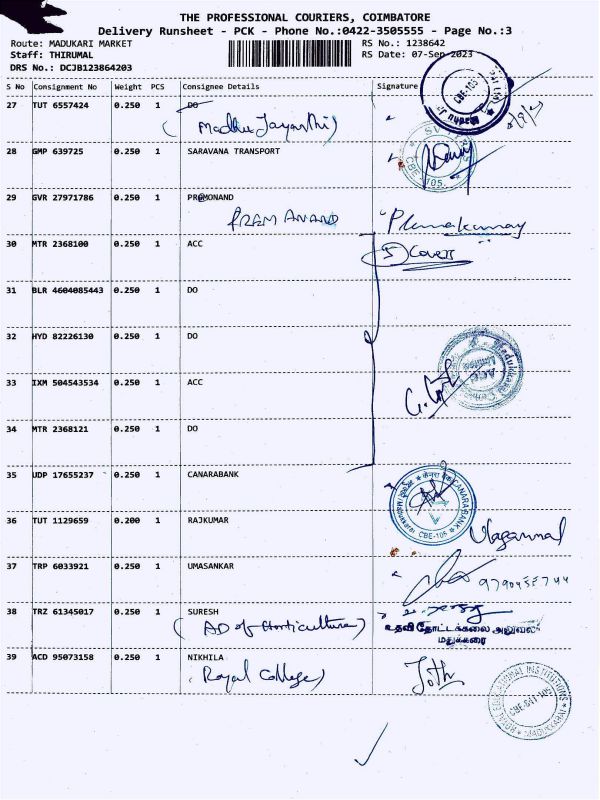 THE PROFESSIONAL COURIERS, COIMBATORE
Delivery Runsheet - PCK - Phone No.:0422-3505555 - Page No.:3
Route: MADUKARI MARKET RS No.: 1238642
Staff: THIRUMAL RS Date: 07-Sep-2023
DRS No.: DCJB123864203
S No Consignment No Weight PCS Consignee Details Signature
27 TUT 6557424 0.250 1 DO
(Madhu Jayanthi)
28 GMP 639725 0.250 1 SARAVANA TRANSPORT
CBE-105.
29 GVR 27971786 0.250 1 PREMONAND
PREM ANAND
30 MTR 2368100 0.250 1 ACC
5 Covers
31 BLR 4604085443 0.250 1 DO
32 HYD 82226130 0.250 1 DO
33 IXM 504543534 0.250 1 ACC
34 MTR 2368121 0.250 1 DO
35 UDP 17655237 0.250 1 CANARABANK
CANARA BANK
CBE-105
36 TUT 1129659 0.200 1 RAJKUMAR
37 TRP 6033921 0.250 1 UMASANKAR
38 TRZ 61345017 0.250 1 SURESH
(AD of Horticulture)
உதவி தோட்டக்கலை அலுவலர்
மதுக்கரை
39 ACD 95073158 0.250 1 NIKHILA
(Royal College)
ROYAL EDUCATIONAL INSTITUTIONS
CBE-641 105
MADUKKARAI